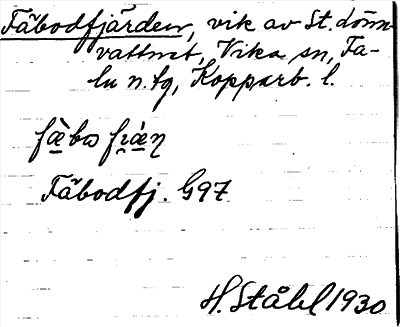 Fäbodfjärden, vik av St. dönn-
vattnet, Vika sn, Fa-
lu n. tg, Kopparb. l.
Fäbodfj. G97
H. Ståhl 1930